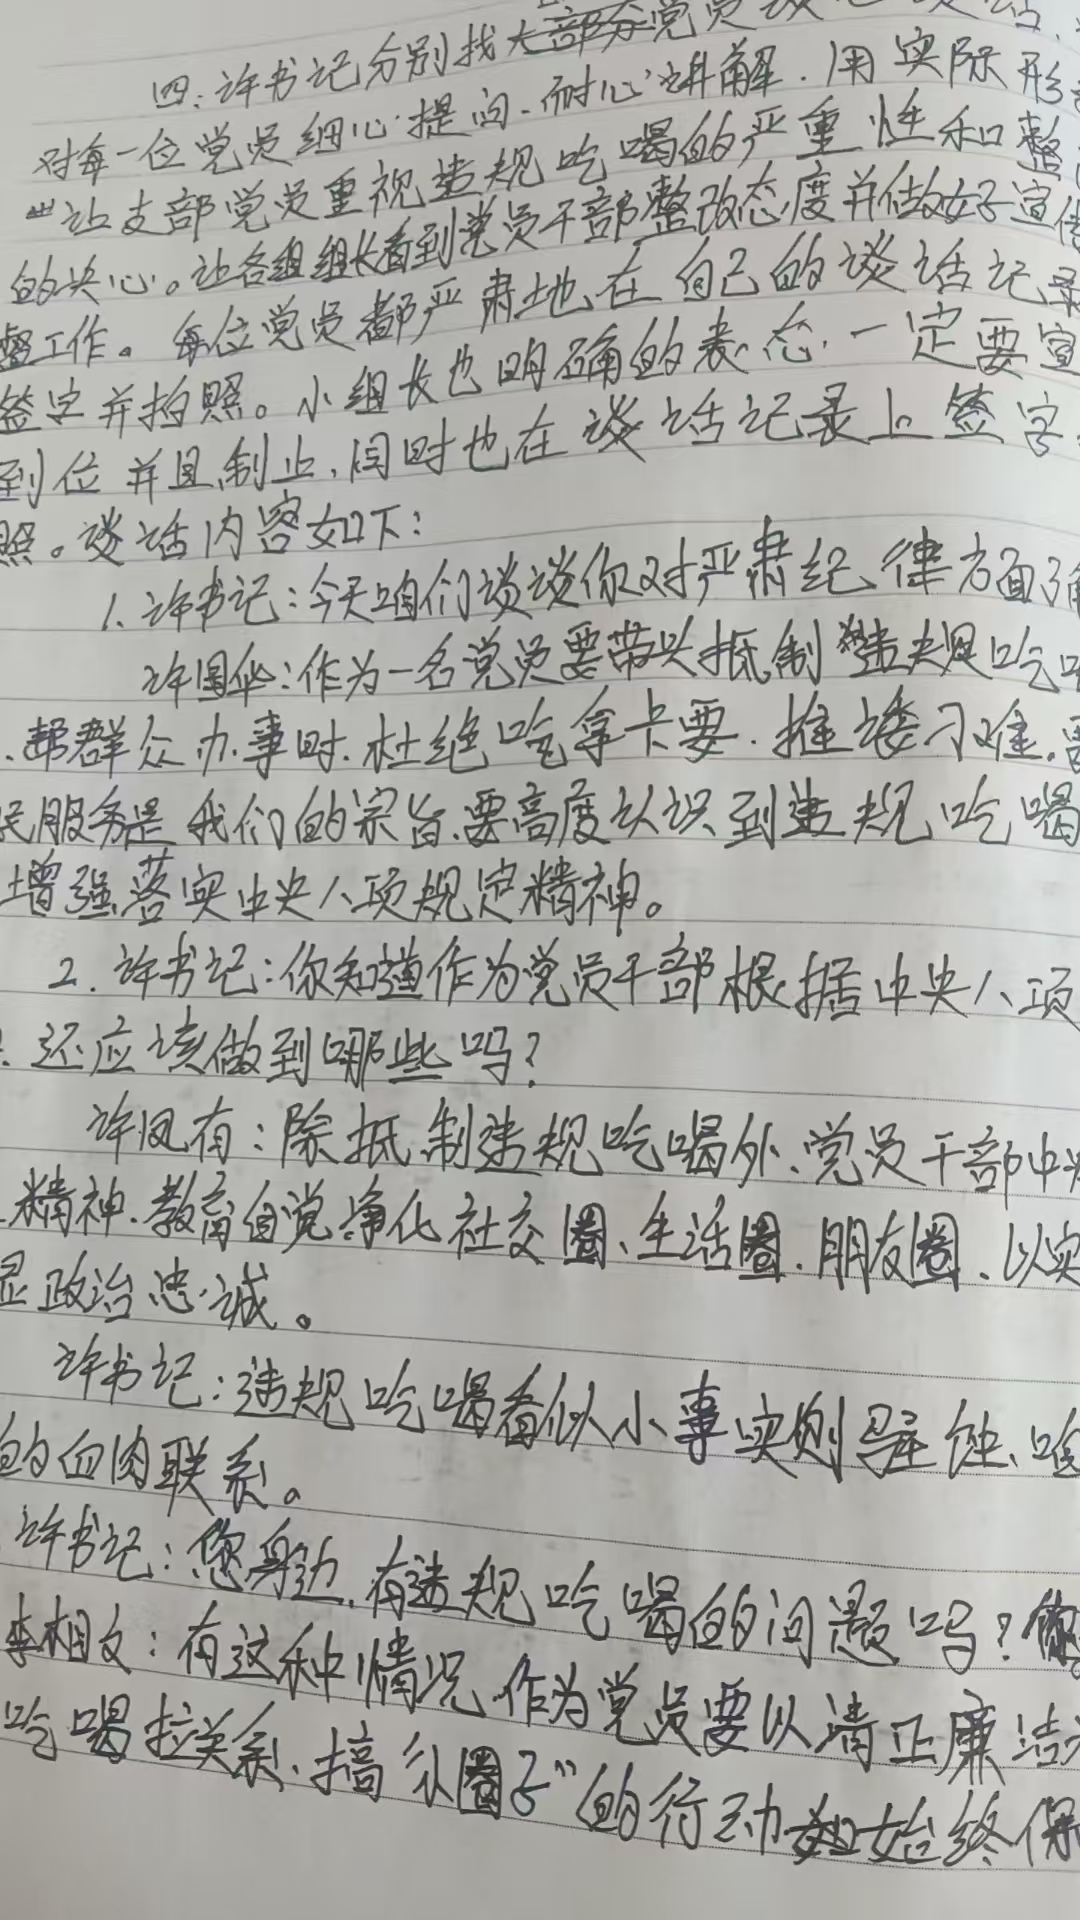 四：许书记分别找大部分党员谈心谈话、
对每一位党员细心提问、耐心讲解．用实际形
让支部党员重视违规吃喝的严重性和整
的决心。让各组组长看到党员干部整改态度并做好宣传
督工作。每位党员都严肃地在自己的谈话记录
签字并拍照。小组长也明确的表态．一定要宣
到位并且制止，同时也在谈话记录上签字
照。谈话内容如下：
1、许书记：今天咱们谈谈你对严肃纪律方面了解
许国华：作为一名党员要带头抵制违规吃喝
、帮群众办事时．杜绝吃拿卡要．推诿刁难．
民服务是我们的宗旨、要高度认识到违规吃喝
增强落实中央八项规定精神。
2．许书记：你知道作为党员干部根据中央八项
还应该做到哪些吗？
许凤有：除抵制违规吃喝外、党员干部中央
精神．教育自觉净化社交圈、生活圈．朋友圈、以实
显政治忠诚。
许书记：违规吃喝看似小事实则 蚀、
的血肉联系。
许书记：您身边．有违规吃喝的问题吗？
李相文：有这种情况．作为党员要以清正廉洁
吃喝拉关系、搞"小圈子"的行动 始终保